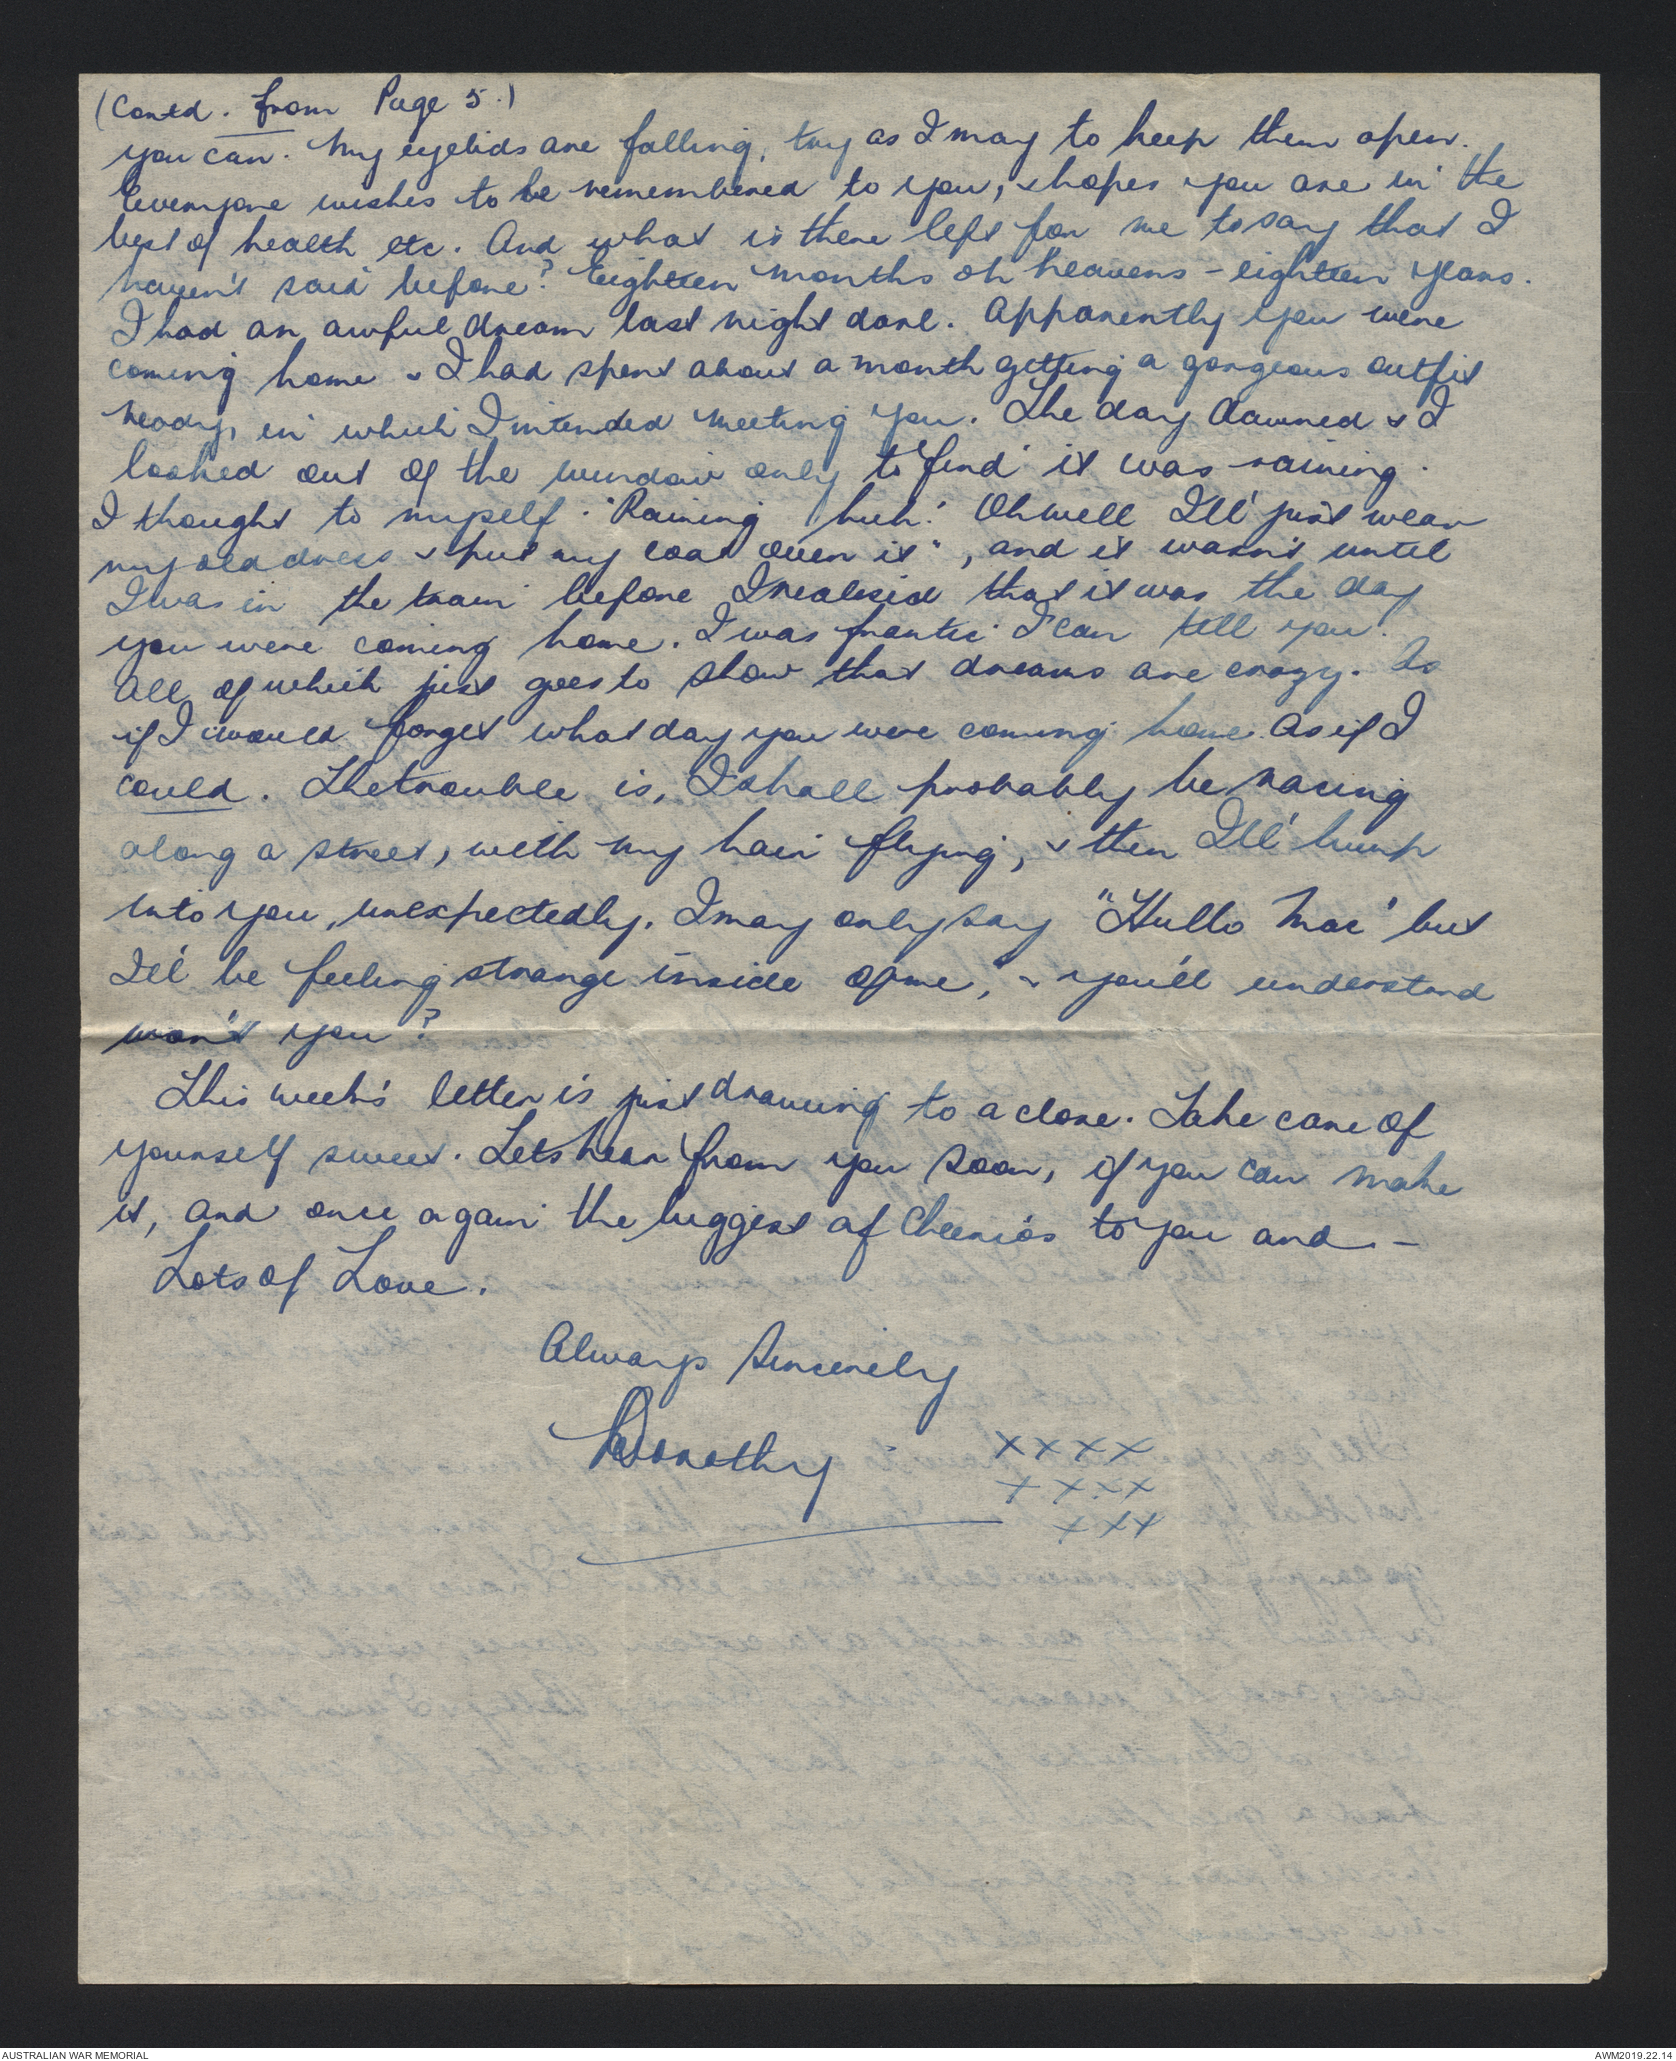 (Contd. from Page 5.)
you can. My eyelids are falling, try as I may to keep them open.
Everyone wishes to be remembered to you, & hopes you are in the
best of health etc. And what is there left for me to say that I
haven't said before? Eighteen months oh heavens - eighteen years.
I had an awful dream last night darl. Apparently you were
coming home & I had spent about a month getting a gorgeous outfit
ready, in which I intended meeting you. The day dawned & I
looked out of the window only to find it was raining.
I thought to myself. "Raining huh! Oh well I'll just wear
my old dress & put my coat over it", and it wasn't until
I was in the train before I realised that it was the day
you were coming home. I was frantic I can tell you.
All of which just goes to show that dreams are crazy. As
if I would forget what day you were coming home. As if I
could. The trouble is, I shall probably be racing
along a street, with my hair flying, & then I'll bump
into you, unexpectedly. I may only say "Hullo Mac" but
I'll be feeling strange inside of me, & you'll understand
won't you?
This week's letter is just drawing to a close. Take care of
yourself sweet. Lets hear from you soon, if you can make
it, and once again the biggest of Cheerio's to you and -
Lots of Love.
Always Sincerely
Dorothy
x x x x
x x x x
x x x
AUSTRALIAN WAR MEMORIAL
AWM2019.22.14